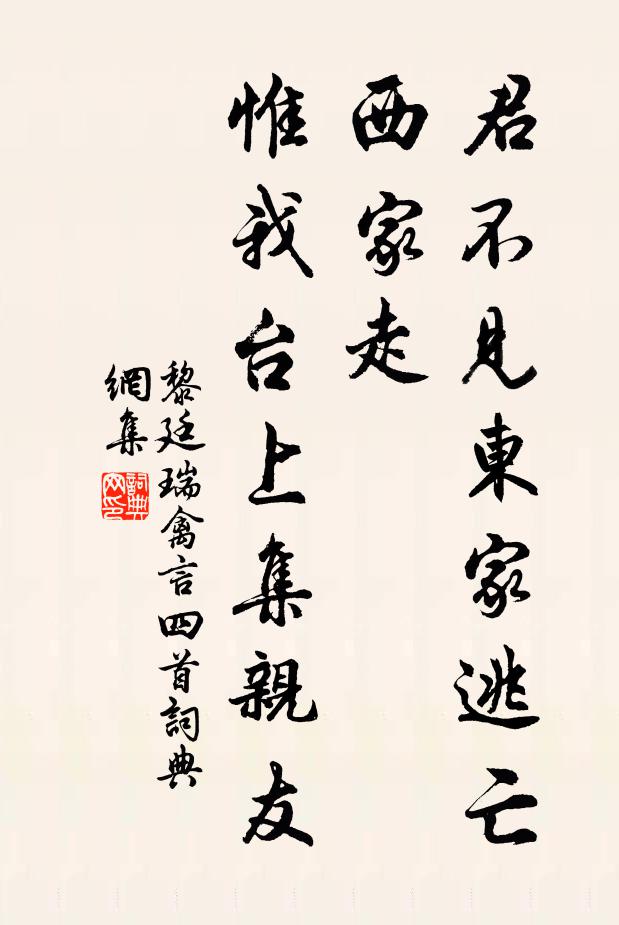 君不見東家逃亡
西家走
惟我台上集親友
黎廷瑞禽言四首詞典
網集
詞典
网印